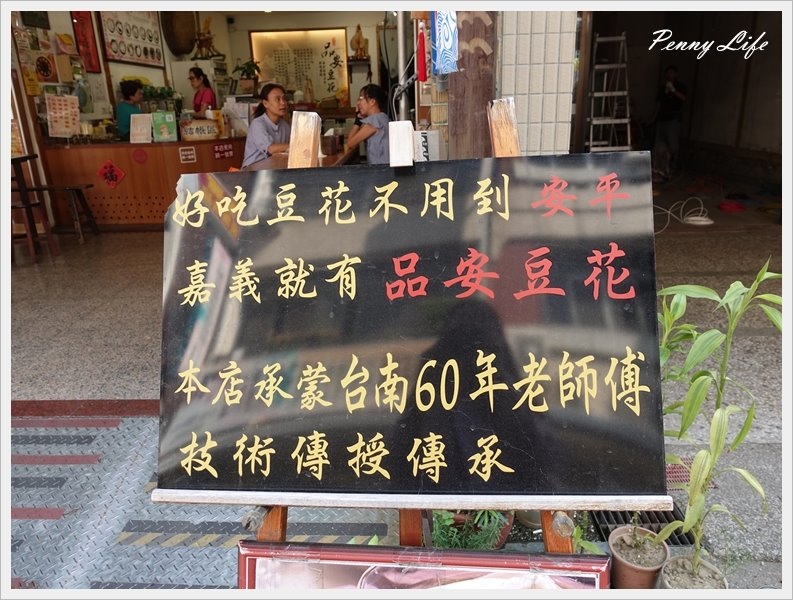 Penny Life
品安豆花
結帳區
福
好吃豆花不用到 安平
嘉義就有 品安豆花
本店承蒙台南60年老師傅
技術傳授傳承